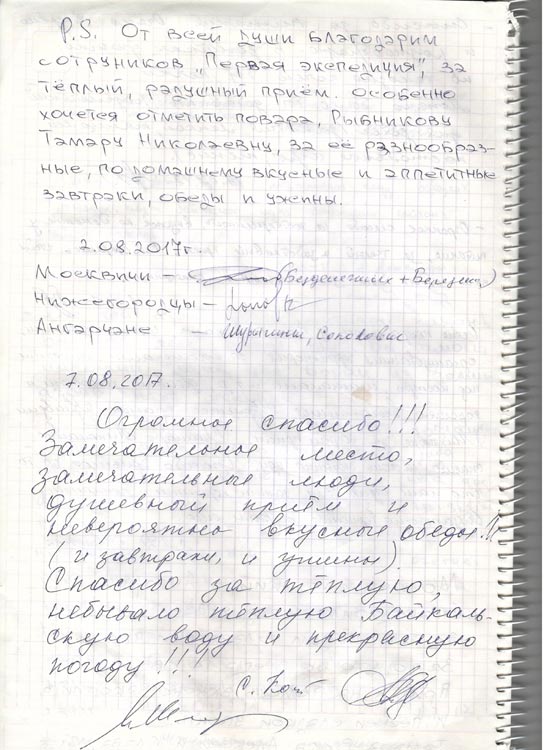 P.S. От всей души благодарим
сотрудников "Первая экспедиция", за
тёплый, радушный приём. Особенно
хочется отметить повара, Рыбникову
Тамару Николаевну, за её разнообраз-
ные, по домашнему вкусные и аппетитные
завтраки, обеды и ужины.
2.08.2017г.
Москвичи –
Нижегородцы –
Ангарчане –
7.08.2017.
Огромное спасибо!!!
Замечательное место,
замечательные люди,
душевный приём и
невероятно вкусные обеды!!!
(и завтраки, и ужины).
Спасибо за тёплую,
небывало тёплую Байкаль-
скую воду и прекрасную
погоду!!!